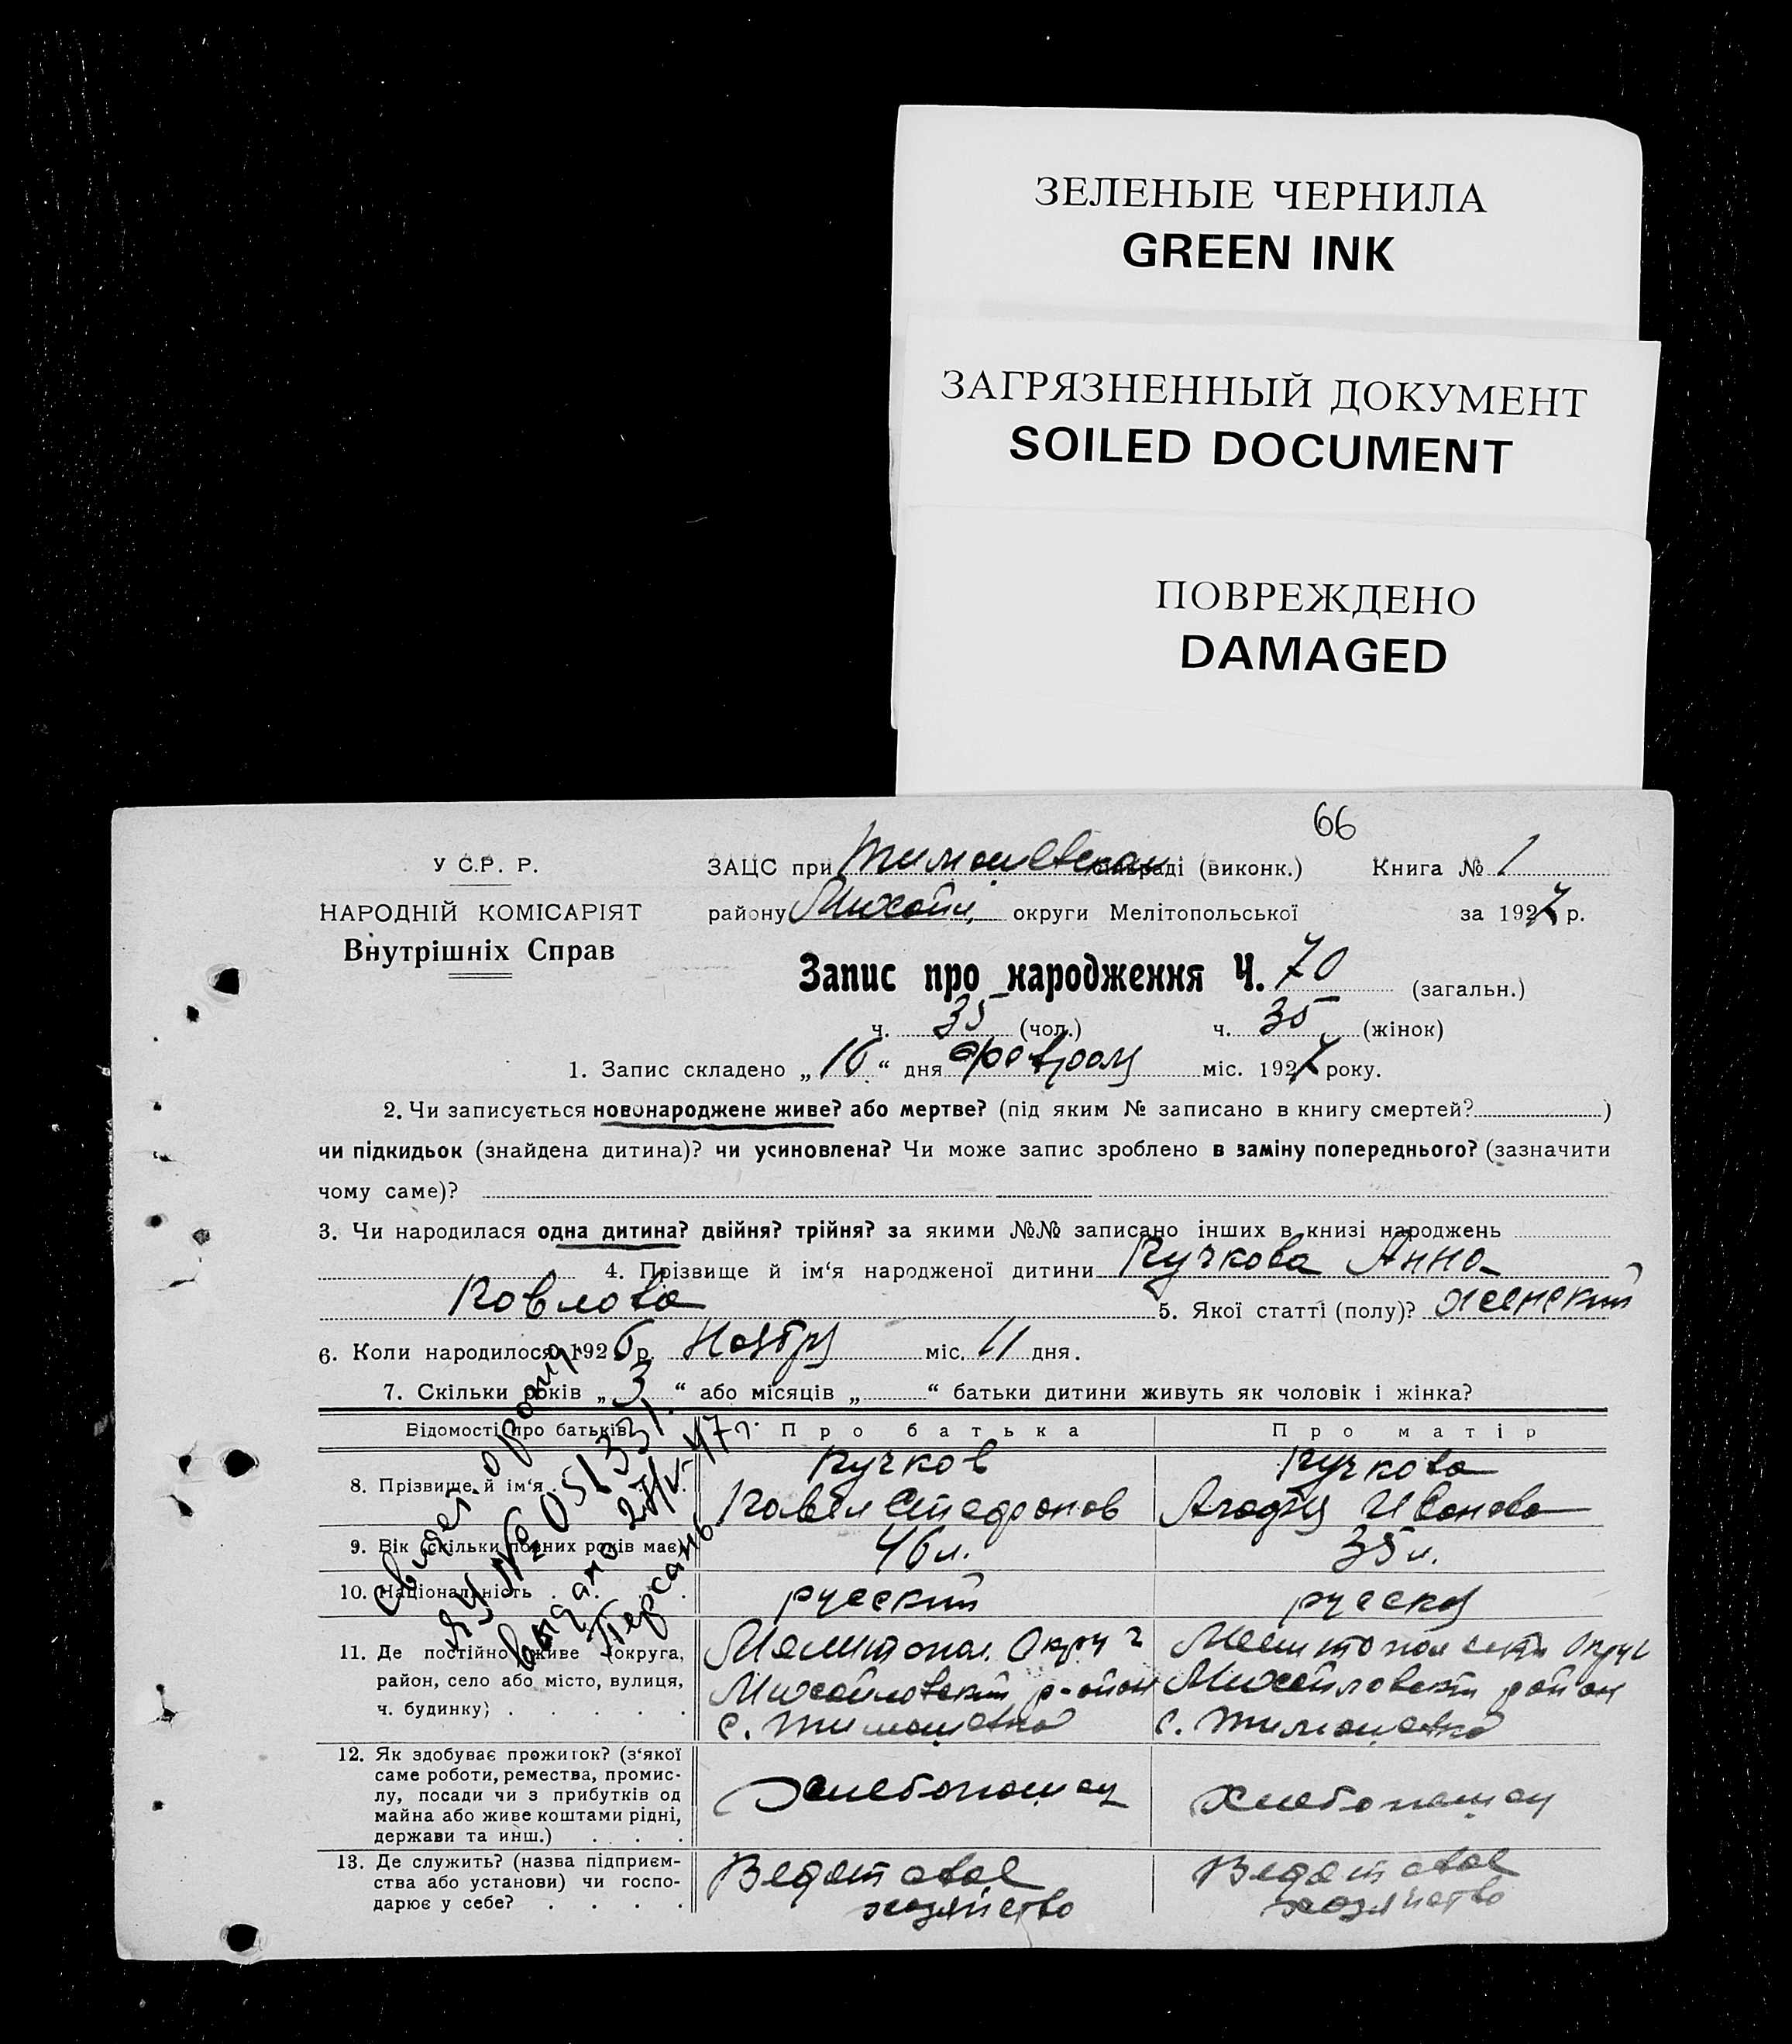 ЗЕЛЕНЫЕ ЧЕРНИЛА
GREEN INK
ЗАГРЯЗНЕННЫЙ ДОКУМЕНТ
SOILED DOCUMENT
ПОВРЕЖДЕНО
DAMAGED
66
У С.Р. Р.
НАРОДНІЙ КОМІСАРІЯТ
Внутрішніх Справ
ЗАЦС при Тимошевском сільраді (виконк.) Книга № 1
району Михайл. округи Мелітопольської за 1927 р.
Запис про народження Ч. 70 (загальн.)
ч. 35 (чол.) ч. 35 (жінок)
1. Запис складено „16“ дня февраля міс. 1927 року.
2. Чи записується новонароджене живе? або мертве? (під яким № записано в книгу смертей? )
чи підкидьок (знайдена дитина)? чи усиновлена? Чи може запис зроблено в заміну попереднього? (зазначити
чому саме)?
3. Чи народилася одна дитина? двійня? трійня? за якими №№ записано інших в книзі народжень
4. Прізвище й ім‘я народженої дитини Кучкова Анна
Павлова 5. Якої статті (полу)? женский
6. Коли народилося 1926 р. Ноября міс. 11 дня.
7. Скільки років „3“ або місяців „ “ батьки дитини живуть як чоловік і жінка?
Відомості про батьків Про батька Про матір
8. Прізвище й ім‘я Кучков Кучкова
Павел Стефанов Агафия Иванова
9. Вік (скільки повних років має) 46 л. 35 л.
10. Національність русский русская
11. Де постійно живе (округа, Мелитопол. Округ Мелитопольский Округ
район, село або місто, вулиця, Михайловский район Михайловский район
ч. будинку) с. Тимошевка с. Тимошевка
12. Як здобуває прожиток? (з‘якої
саме роботи, ремества, промис-
лу, посади чи з прибутків од
майна або живе коштами рідні,
держави та инш.) Хлебопашец Хлебопашец
13. Де служить? (назва підприєм-
ства або установи) чи госпо-
дарює у себе?
хозяйство хозяйство
Свидет. о рожд.
ЯЧ № 051331
выдано 47 г.